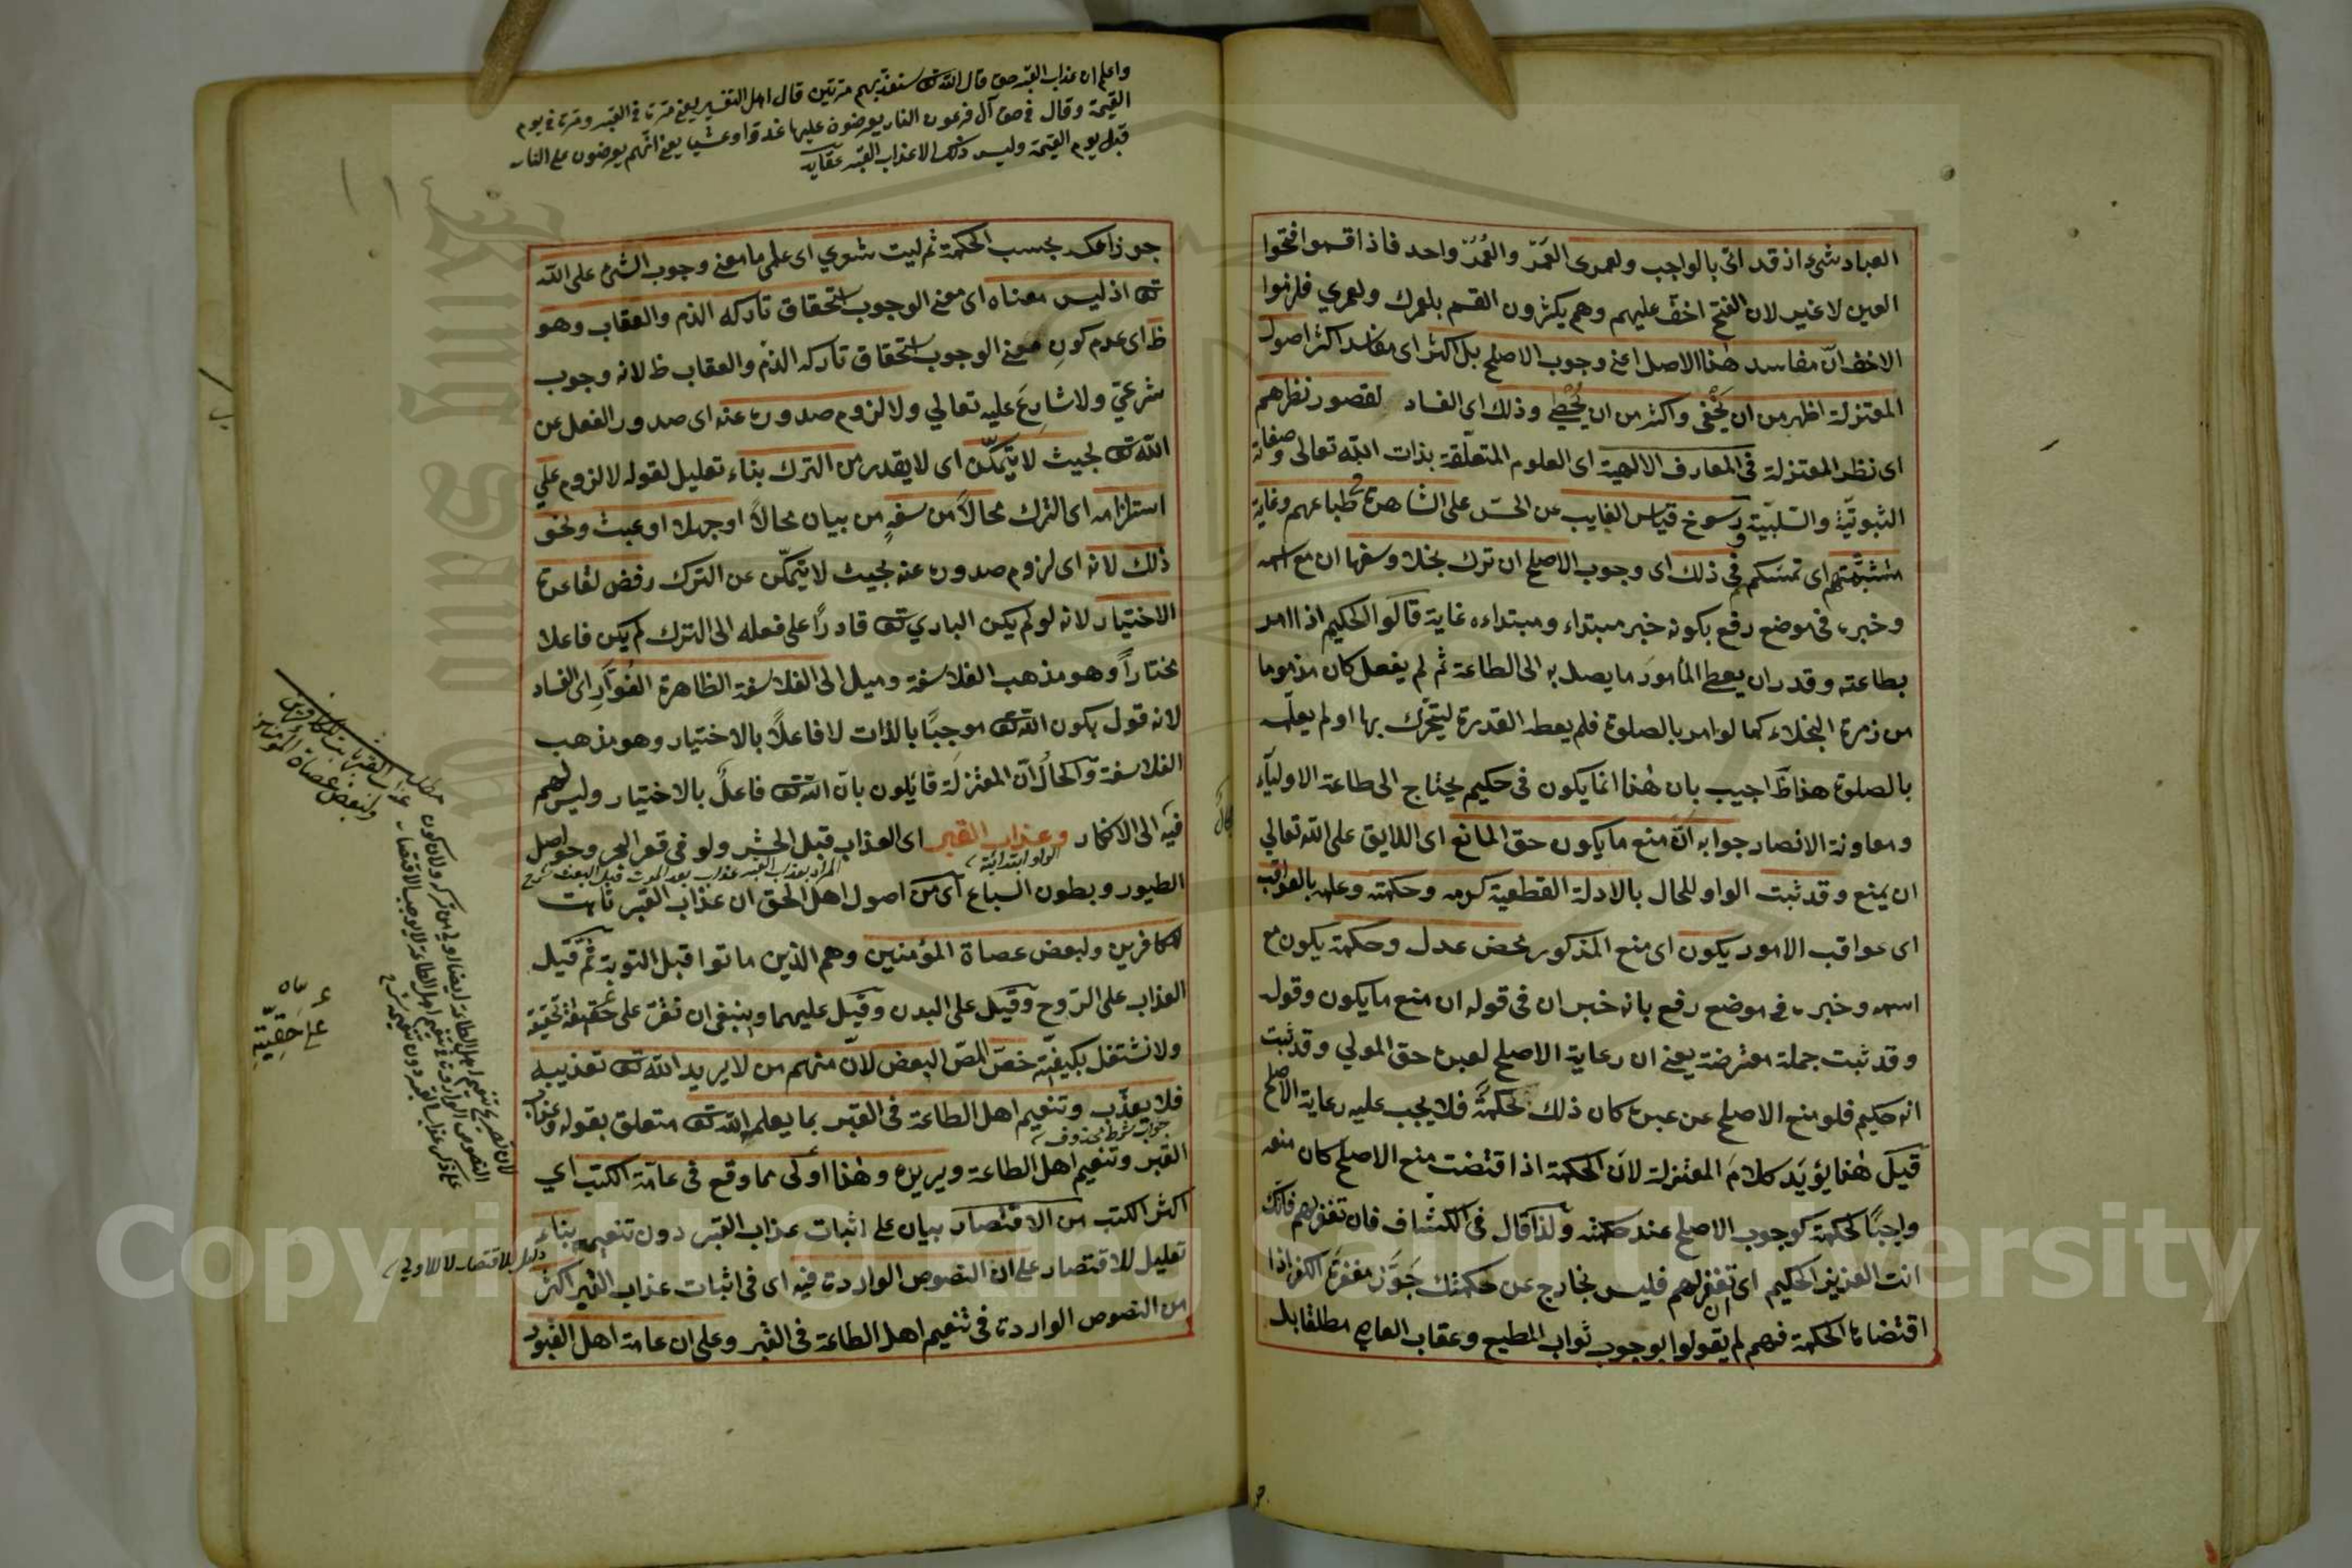 العباد شيء اذ قد اتى بالواجب ولعمرى العَمر والعُمر واحد فاذا اقسموا فتحوا
العين لا غير لان الفتح اخف عليهم وهم يكثرون القسم بلعمرك ولعمري فلزموا
الاخف انّ مفاسد هذا الاصل اعني وجوب الاصلح بل اكثر اى مفاسد اكثر اصول
المعتزلة اظهر من ان يَخْفى واكثر من ان يُحْصٰى وذلك اى الفساد لقصور نظرهم
اى نظر المعتزلة فى المعارف الالهية اى العلوم المتعلّقة بذات الله تعالى وصفاته
الثبوتيّة والسّلبيّة ورسوخ قياس الغايب عن الحسّ على الشاهد فى طباعهم وغاية
متشبّثهم اى تمسّكهم فى ذلك اى وجوب الاصلح ان ترك بخلا وسفها ان مع اسمه
وخبره فى موضع رفع بكونه خبر مبتداء ومبتداءه غاية قالوا الحكيم اذا امر
بطاعته وقدر ان يعطى المأمورَ ما يصل به الى الطاعة ثم لم يفعل كان مذموما
من زمرة البخلاء كما لو امر بالصلوة فلم يعط القدرة ليتحرّك بها او لم يعلّمه
بالصلوة هذا ظ اجيب بان هذا انما يكون فى حكيم يحتاج الى طاعة الاولياء
ومعاونة الانصار جوابه انّ منع ما يكون حق المانع اى اللايق على الله تعالي
ان يمنع وقد ثبت الواو للحال بالادلة القطعية كرمه وحكمته وعلمه بالعواقب
اى عواقب الامور يكون اى منع المذكور محض عدل وحكمة يكون مع
اسمه وخبره فى موضع رفع بانه خبر ان فى قوله ان منع ما يكون وقوله
وقد ثبت جملة معترضة يعنى ان رعاية الاصلح لعبده حق المولي وقد ثبت
انه حكيم فلو منع الاصلح عن عبده كان ذلك لحكمةً فلا يجب عليه رعاية الاصلح
قيل هذا يؤيّد كلامَ المعتزلة لانّ الحكمة اذا اقتضت منح الاصلح كان منعه
واجبًا لحكمة كوجوب الاصلح عند حكمته ولذا قال فى الكشاف فان تغفر لهم فانّك
انت العزيز الحكيم اى ان تغفر لهم فليس بخارج عن حكمتك جَوّز مغفرة الكفر اذا
اقتضاه الحكمة فهم لم يقولوا بوجوب ثواب المطيع وعقاب العاصي مطلقا بل
واعلم ان عذاب القبر حق قال الله تعـ سنعذّبهم مرّتين قال اهل التفسير يعنى مرة فى القبر ومرة فى يوم
القيمة وقال فى حق آل فرعون النار يعرضون عليها غدوّا وعشيا يعنى انّهم يعرضون على النار
قبل يوم القيمة وليس ذلك الا عذاب القبر عقايد
جوز العكس بحسب الحكمة ثم ليت شعري اى علمي ما معنى وجوب الشئ على الله
تعـ اذ ليس معناه اى معنى الوجوب استحقاق تاركه الذم والعقاب وهو
ظ اى عدم كون معنى الوجوب استحقاق تاركه الذم والعقاب ظ لانه وجوب
شرعيّ ولا شارِعَ عليه تعالي ولا لزوم صدوره عنه اى صدور الفعل عن
الله تعـ بحيث لا يتمكّن اى لا يقدر من الترك بناء تعليل لقوله لا لزوم علي
استلزامه اى الترك محالاً من سفهٍ من بيان محالاً او جهل او عبث ونحو
ذلك لانه اى لزوم صدوره عنه بحيث لا يتمكّن عن الترك رفض لقاعدة
الاختيار لانه لو لم يكن الباري تعـ قادرًا على فعله الى الترك لم يكن فاعلا
مختاراً وهو مذهب الفلاسفة وميل الى الفلاسفة الظاهرة العُوَار اى الفساد
لانه قول بكون الله تعـ موجبًا بالذات لا فاعلاً بالاختيار وهو مذهب
الفلاسفة والحالُ انّ المعتزلة قائلون بانّ الله تعـ فاعلٌ بالاختيار وليس لهم
فيه الى الانكار وعذاب القبر اى العذاب قبل الحشر ولو فى قعر البحر وحواصل
الواو ابتدائية
المراد بعذاب القبر عذاب بعد الموت قبل البعث شرح
الطيور وبطون السباع اى من اصول اهل الحق ان عذاب القبر ثابت
للكافرين ولبعض عصاة المؤمنين وهم الذين ماتوا قبل التوبة ثم قيل
العذاب على الرّوح وقيل على البدن وقيل عليهما وينبغى ان نقرّ على حقيقته
ولا نشتغل بكيفيّته خصّ المصّ البعض لانّ منهم من لا يريد الله تعـ تعذيبه
فلا يعذّب وتنعيم اهل الطاعة فى القبر بما يعلمه الله تعـ متعلق بقوله وعذاب
جواب شرط محذوف
القبر وتنعيم اهل الطاعة ويريده وهذا اولى مما وقع فى عامّة الكتب اي
اكثر الكتب من الاقتصار بيان على اثبات عذاب القبر دون تنعيمه بناء
دليل للاقتصار لا للاولي
تعليل للاقتصار على ان النصوص الواردة فيه اى فى اثبات عذاب القبر اكثر
من النصوص الواردة فى تنعيم اهل الطاعة فى القبر وعلى ان عامة اهل القبور
مطلب عذاب القبر ثابت للكافرين
ولبعض عصاة المؤمنين
على حقيّة
Copyright © King Saud University